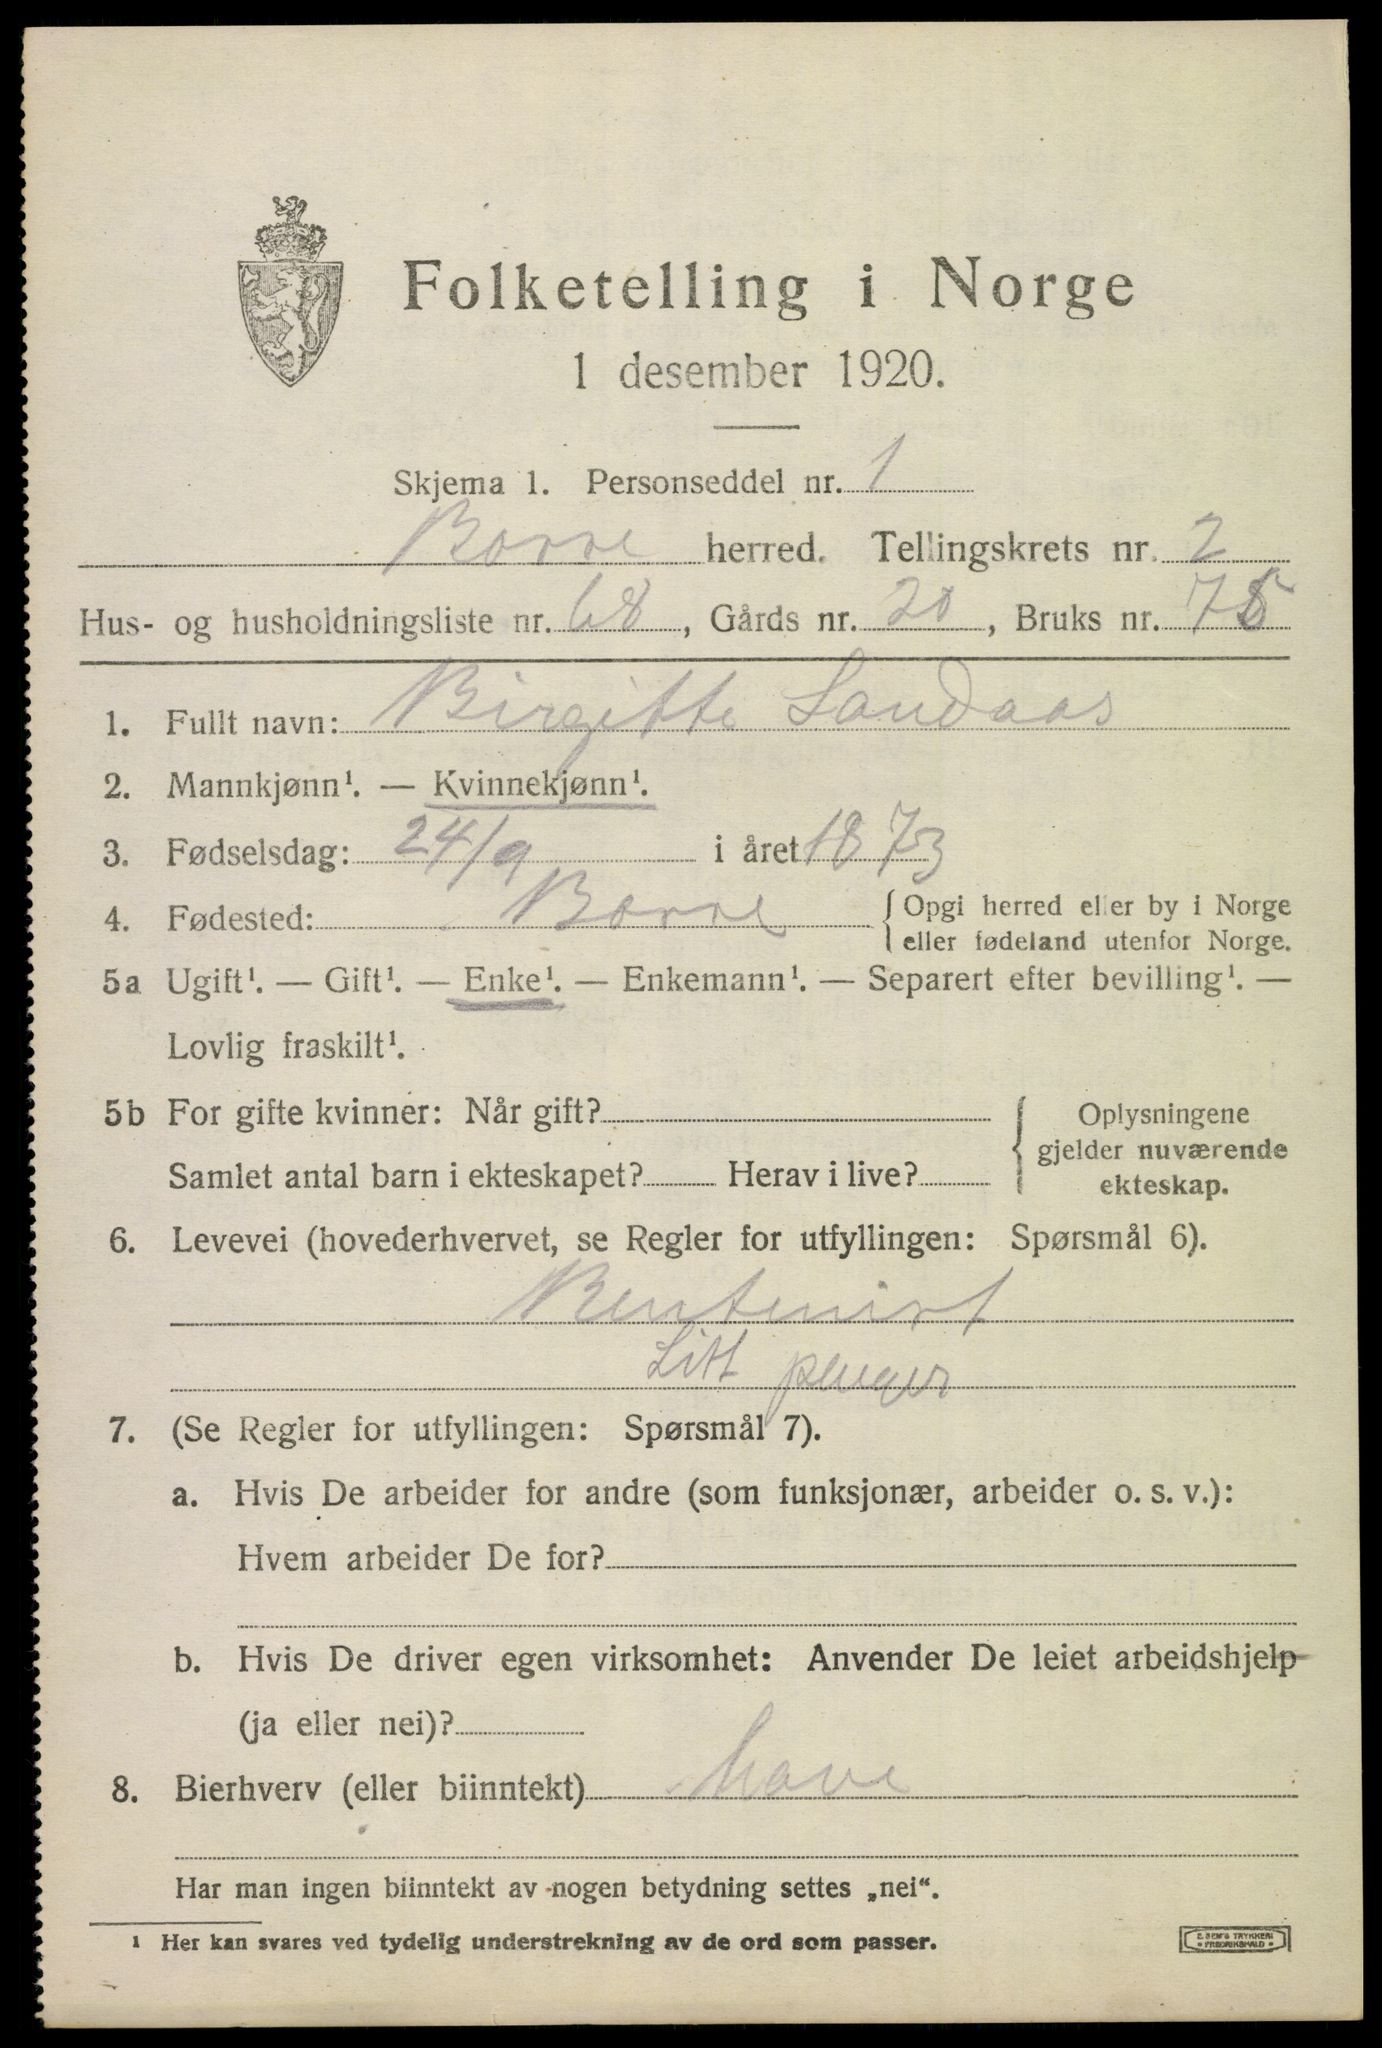 Folketelling i Norge
1 desember 1920.
Skjema 1. Personseddel nr. 1
Borre herred. Tellingskrets nr. 2
Hus- og husholdningsliste nr. 68, Gårds nr. 20, Bruks nr. 75
1. Fullt navn: Birgitte Sandaas
2. Mannkjønn¹. — Kvinnekjønn¹.
3. Fødselsdag: 24/9 i året 1873
4. Fødested: Borre {Opgi herred eller by i Norge
eller fødeland utenfor Norge.
5a Ugift¹. — Gift¹. — Enke¹. — Enkemann¹. — Separert efter bevilling¹. —
Lovlig fraskilt¹.
5b For gifte kvinner: Når gift? { Oplysningene
gjelder nuværende
Samlet antal barn i ekteskapet? Herav i live? ekteskap.
6. Levevei (hovederhvervet, se Regler for utfyllingen: Spørsmål 6).
Rentenist
Litt penger
7. (Se Regler for utfyllingen: Spørsmål 7).
a. Hvis De arbeider for andre (som funksjonær, arbeider o. s. v.):
Hvem arbeider De for?
b. Hvis De driver egen virksomhet: Anvender De leiet arbeidshjelp
(ja eller nei)?
8. Bierhverv (eller biinntekt) have
Har man ingen biinntekt av nogen betydning settes „nei“.
¹ Her kan svares ved tydelig understrekning av de ord som passer.